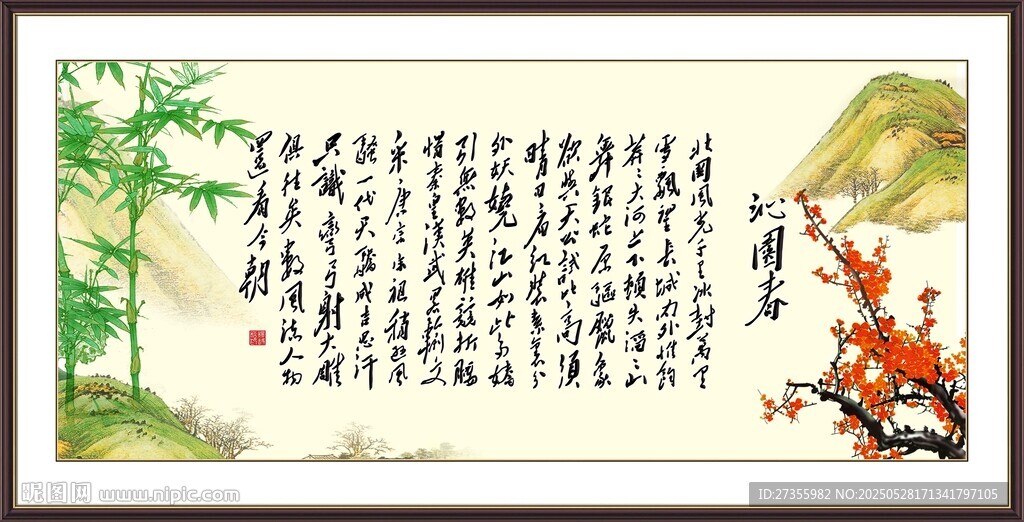 沁園春
北國風光千里冰封萬里
雪飄望長城內外惟餘
莽々大河上下頓失滔々山
舞銀蛇原驅臘象
欲與天公試比高須
晴日看紅裝素裹分
外妖嬈江山如此多嬌
引無數英雄競折腰
惜秦皇漢武略輸文
采唐宗宋祖稍遜風
騷一代天驕成吉思汗
只識彎弓射大雕
俱往矣數風流人物
還看今朝
昵图网 www.nipic.com
ID:27355982 NO:20250528171341797105